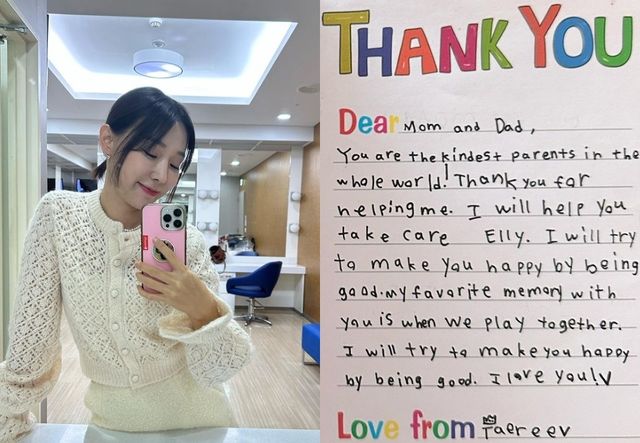 THANK YOU
Dear Mom and Dad,
You are the kindest parents in the
whole world! Thank you for
helping me. I will help you
take care Elly. I will try
to make you happy by being
good. my favorite memory with
you is when we play together.
I will try to make you happy
by being good. I love you!V
Love from Taereev